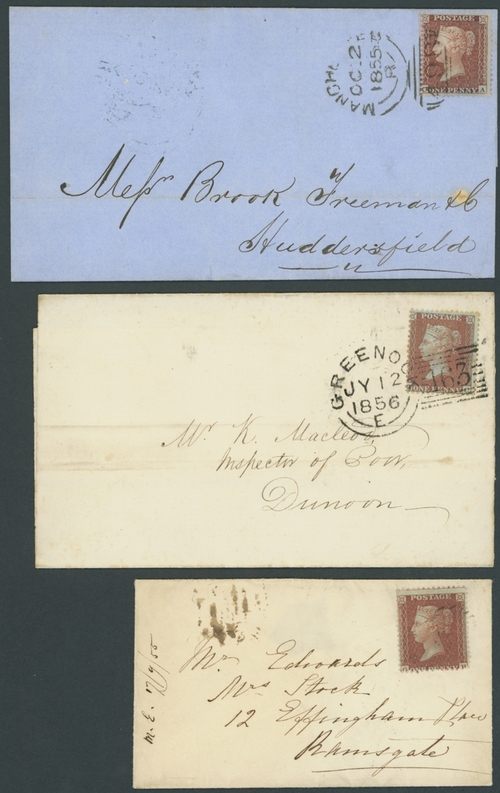 POSTAGE
ONE PENNY
MANCHE
OC 2
1855
R
Messrs Brook Freeman & Co
Huddersfield
POSTAGE
ONE PENNY
GREENOC
JY 12
1856
E
Mr K. Macleod,
Inspector of Poor,
Dunoon
POSTAGE
ONE PENNY
m.E. 17/9/55
Mr Edwards
Mrs Stock
12 Effingham Place
Ramsgate